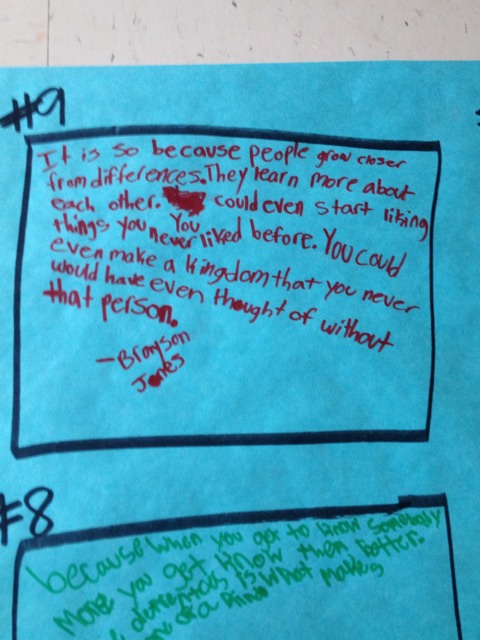 #9
It is so because people grow closer
from differences. They learn more about
each other. You could even start liking
things you never liked before. You could
even make a kingdom that you never
would have even thought of without
that person.
- Brayson
Jones
#8
because when you get to know somebody
More you get know them better.
is what makes